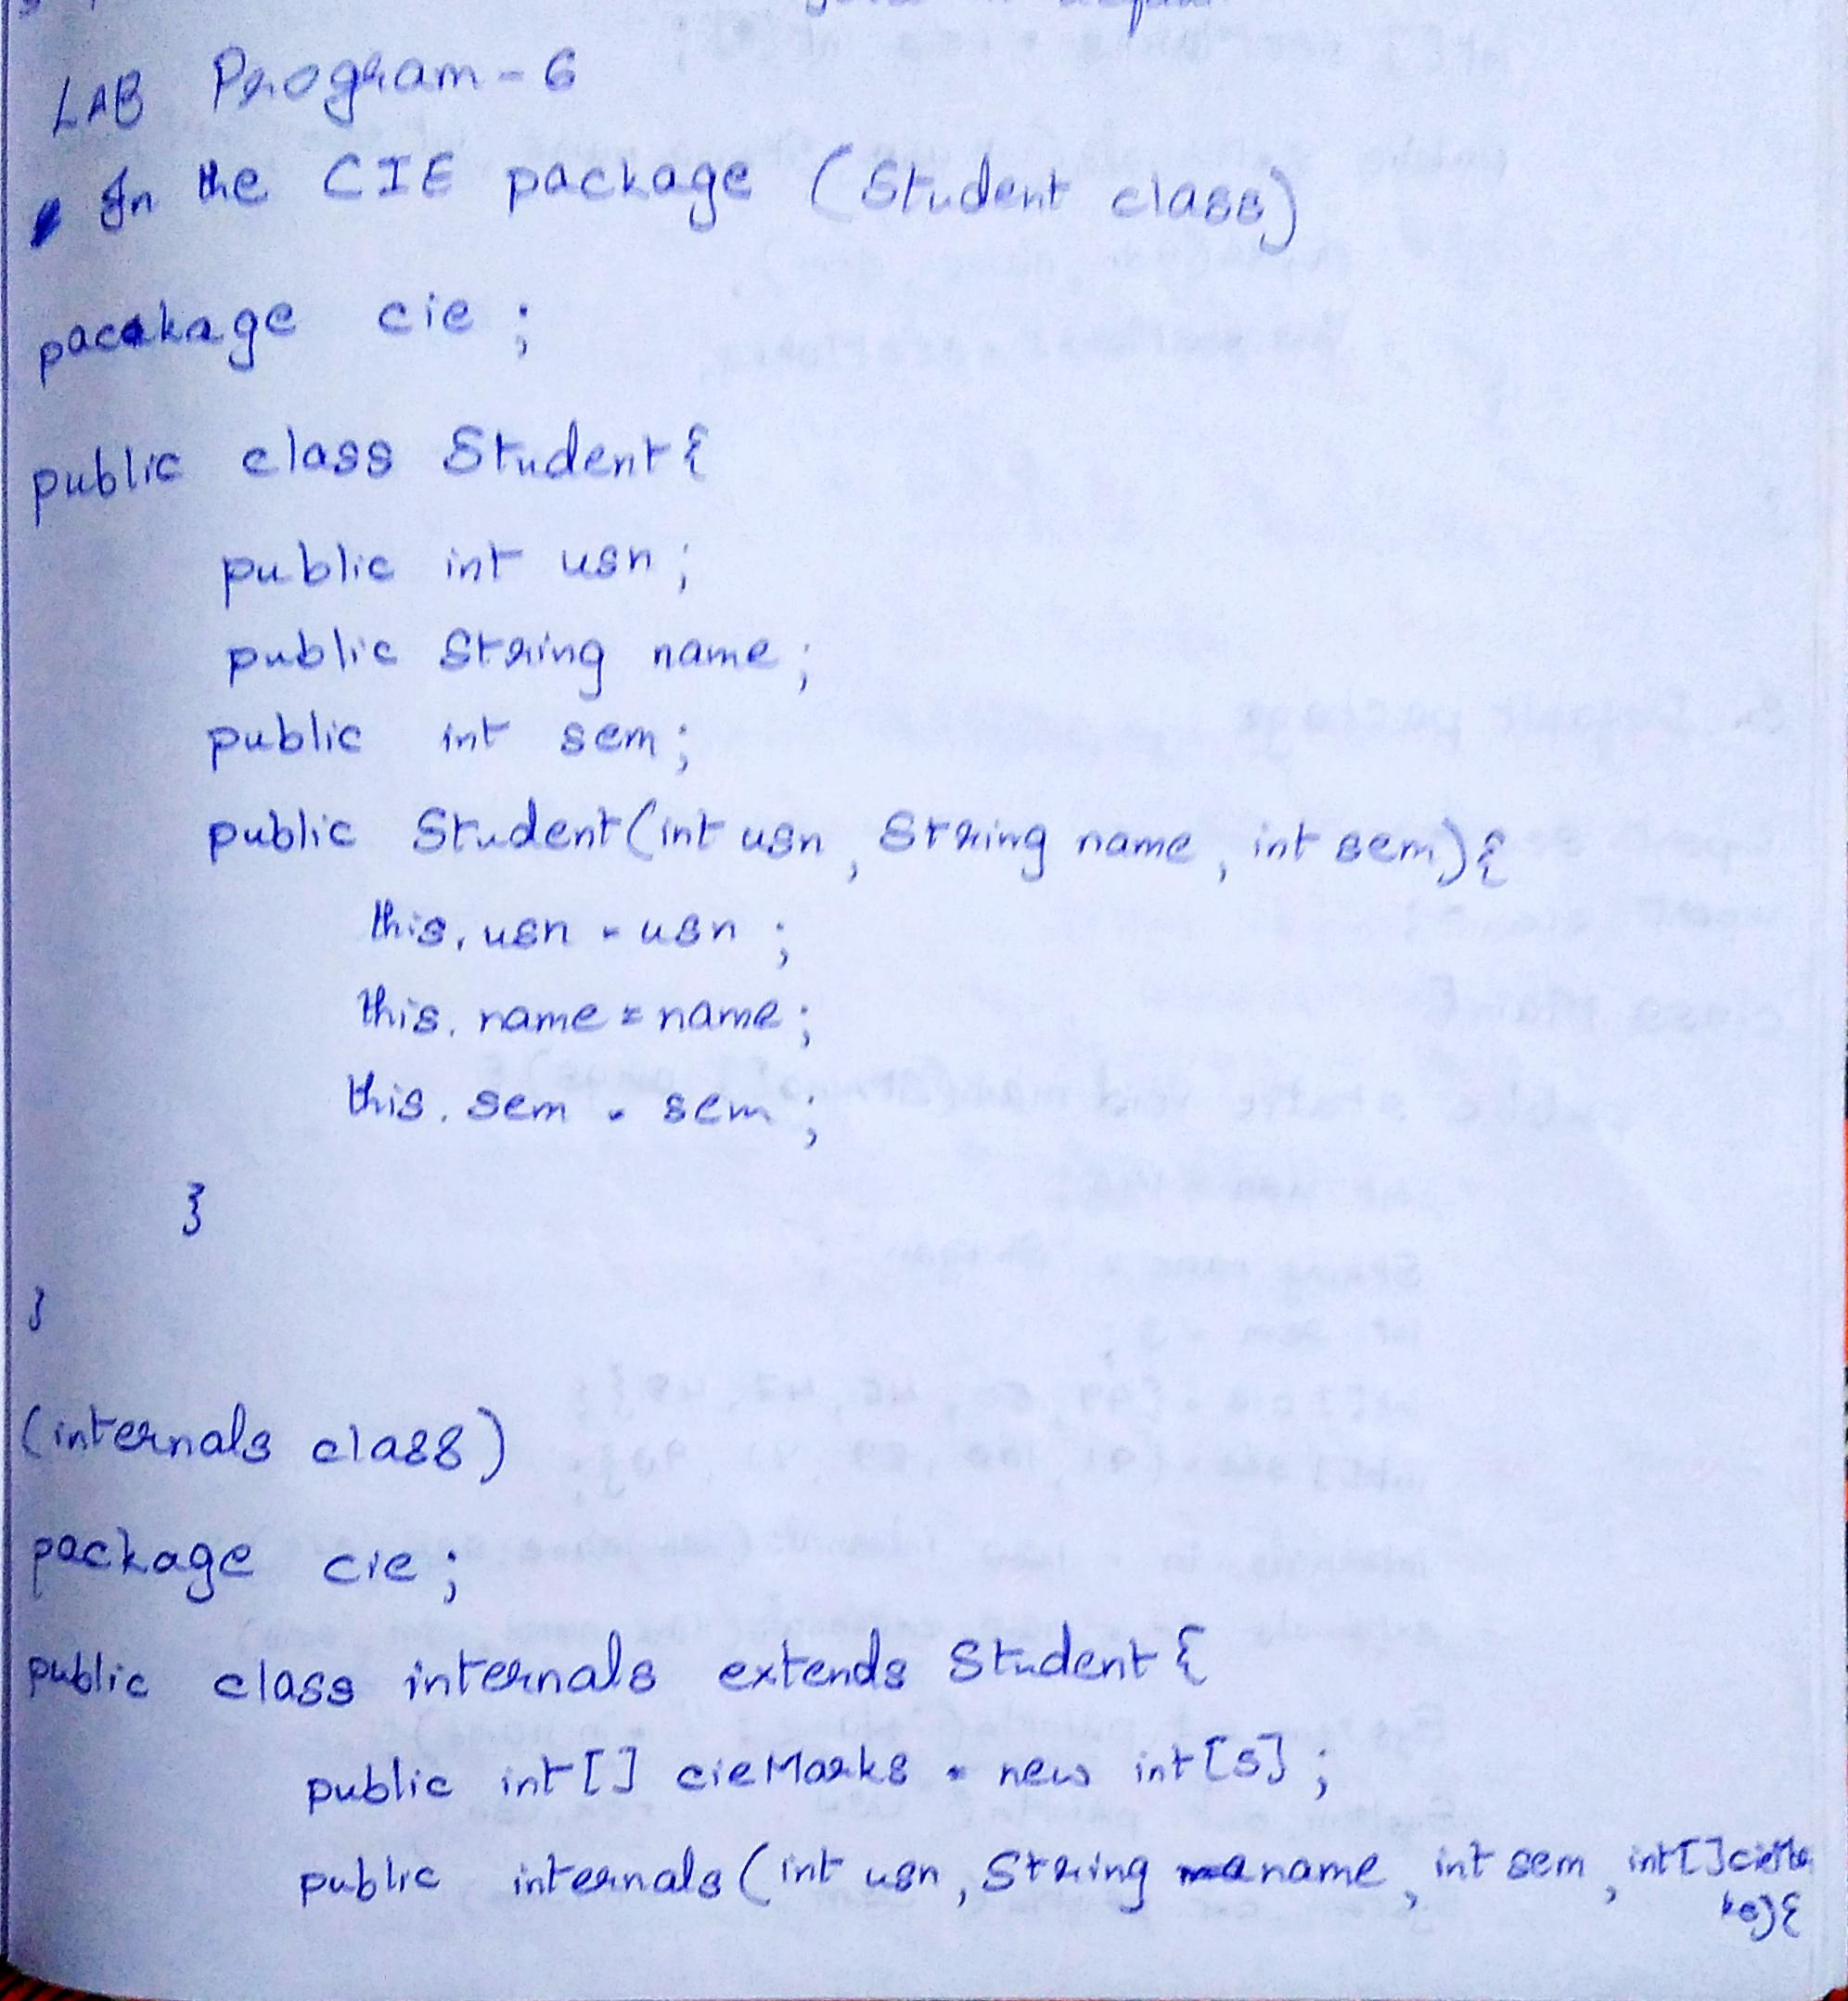 LAB Program - 6
In the CIE package (Student class)
package cie ;
public class Student {
public int usn ;
public String name ;
public int sem ;
public Student (int usn , String name , int sem) {
this. usn = usn ;
this. name = name ;
this. sem = sem ;
}
}
(internals class)
package cie ;
public class internals extends Student {
public int [] cieMarks = new int [5] ;
public internals ( int usn , String name , int sem , int [] cieMa
ks) {